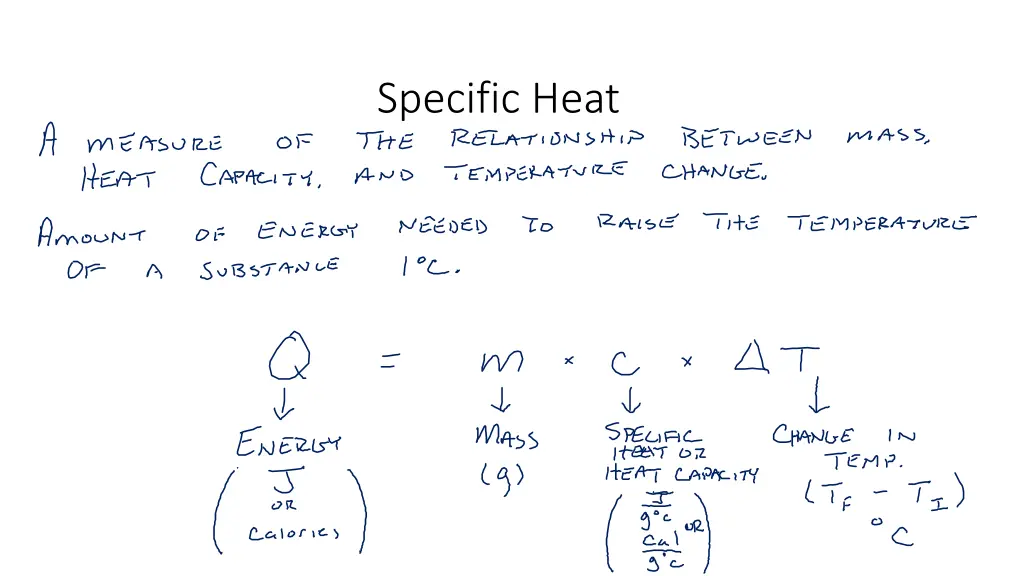 Specific Heat
A MEASURE OF THE RELATIONSHIP BETWEEN MASS,
HEAT CAPACITY, AND TEMPERATURE CHANGE.
AMOUNT OF ENERGY NEEDED TO RAISE THE TEMPERATURE
OF A SUBSTANCE 1°C.
Q = m × c × ΔT
↓ ↓ ↓ ↓
ENERGY MASS SPECIFIC HEAT OR HEAT CAPACITY CHANGE IN TEMP.
(J OR Calories) (g) (J/g°C OR Cal/g°C) (TF - TI) °C